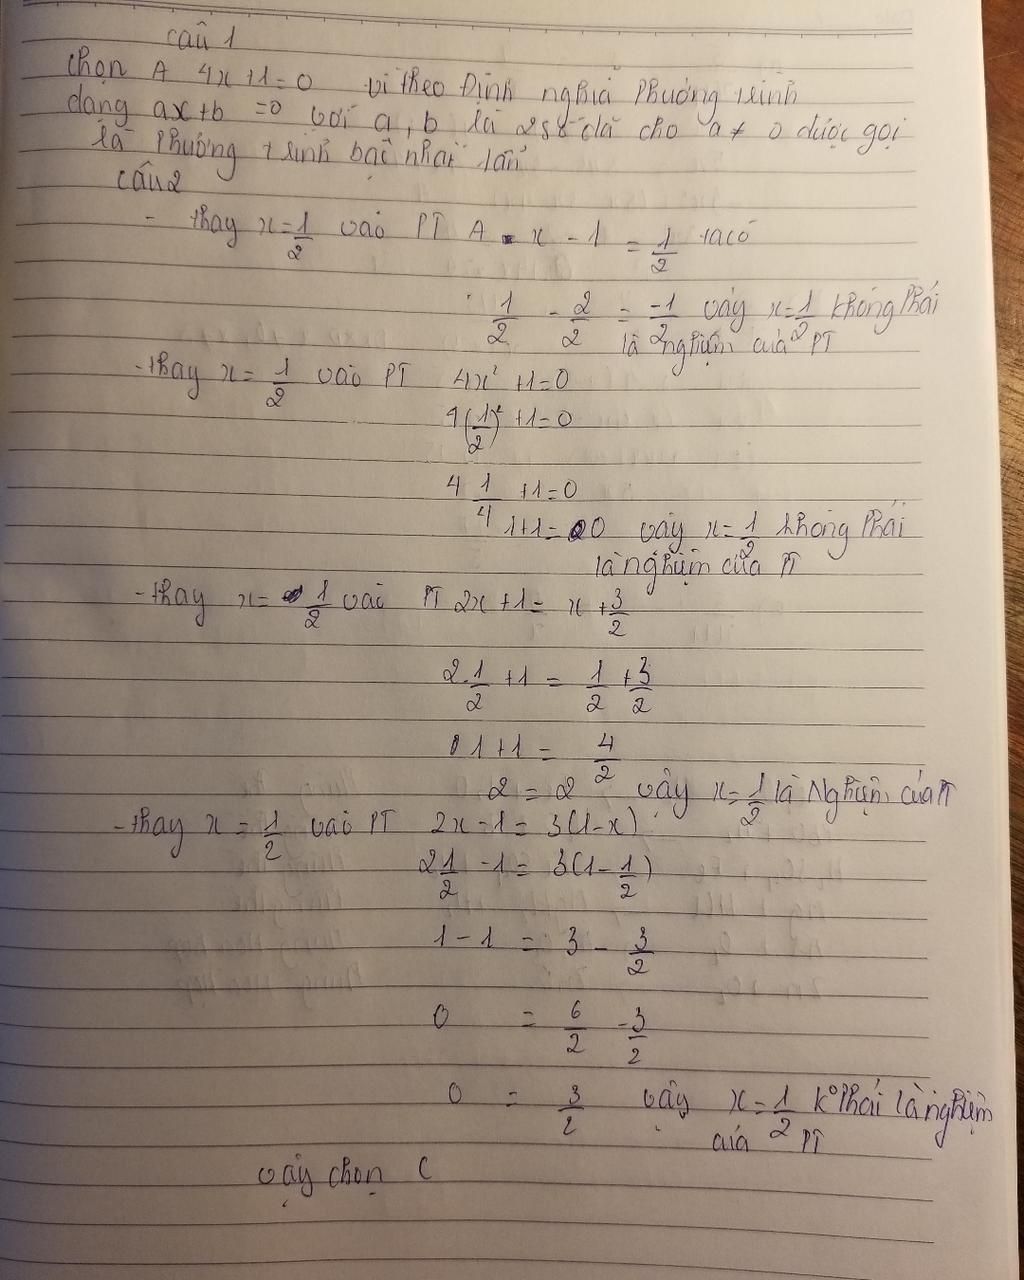 câu 1
chọn A 4x+1=0 vì theo Định nghĩa Phương trình
dạng ax+b =0 với a, b là 2 số đã cho a ≠ 0 được gọi
là Phương trình bậc nhất 1 ẩn
câu 2
- thay x=1/2 vào PT A x - 1 = 1/2 ta có
1/2 - 2/2 = -1/2 vậy x=1/2 không Phải
là nghiệm của PT
- thay x = 1/2 vào PT 4x² +1=0
4(1/2)² +1=0
4 1/4 +1=0
1+1=0 vậy x=1/2 không Phải
là nghiệm của PT
- thay x= 1/2 vào PT 2x+1= x+3/2
2.1/2 +1 = 1/2 + 3/2
1+1 = 4/2
2 = 2 vậy x=1/2 là Nghiệm của PT
- thay x = 1/2 vào PT 2x-1= 3(1-x)
2 1/2 -1= 3(1-1/2)
1-1 = 3 - 3/2
0 = 6/2 - 3/2
0 = 3/2 vậy x=1/2 k° Phải là nghiệm
của PT
vậy chọn C